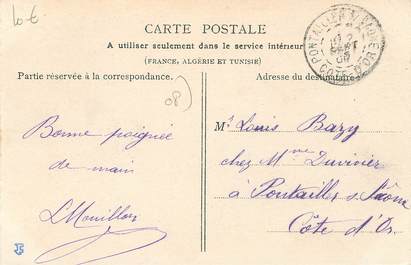 10 €
CARTE POSTALE
A utiliser seulement dans le service intérieur
(FRANCE, ALGÉRIE ET TUNISIE)
Partie réservée à la correspondance.
Adresse du destinataire
PONTAILLER S. SAÔNE
COTE-D'OR
08
Bonne poignée
de main
Mr Louis Bazy
chez Mme Duvivier
à Pontailler s. Saône
Côte d'Or